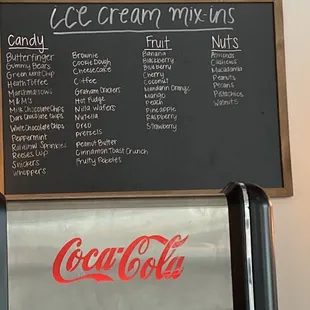 ice cream mix-ins
Candy
Butterfinger
Gummy Bears
Green Mint Chip
Heath Toffee
Marshmallows
M&M's
Milk Chocolate Chips
Dark Chocolate Chips
White Chocolate Chips
Peppermint
Rainbow Sprinkles
Reeses Cup
Snickers
Whoppers
Brownie
Cookie Dough
Cheesecake
Coffee
Graham Crackers
Hot Fudge
Nilla Wafers
Nutella
Oreo
pretzels
Peanut Butter
Cinnamon Toast Crunch
Fruity Pebbles
Fruit
Banana
Blackberry
Blueberry
Cherry
Coconut
Mandarin Orange
Mango
Peach
Pineapple
Raspberry
Strawberry
Nuts
Almonds
Cashews
Macadamia
Peanuts
Pecans
Pistachios
Walnuts
Coca-Cola